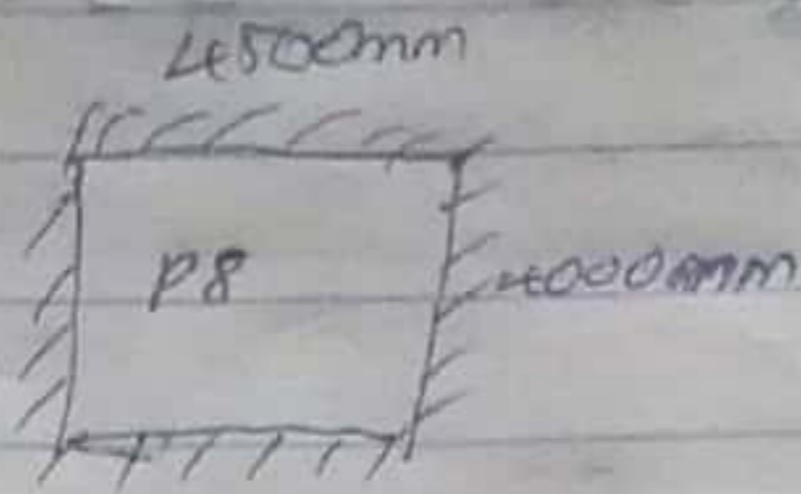 4500mm
P8
4000mm